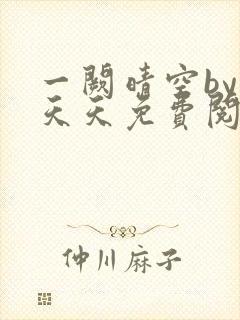 一阙晴空by
天天免费阅
仲川麻子